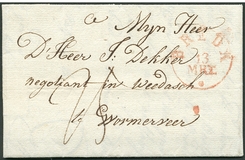 a Mijn Heer
D'Heer J. Dekker
negotiant in Weedasch
Wormerveer
BREDA
13
MEI